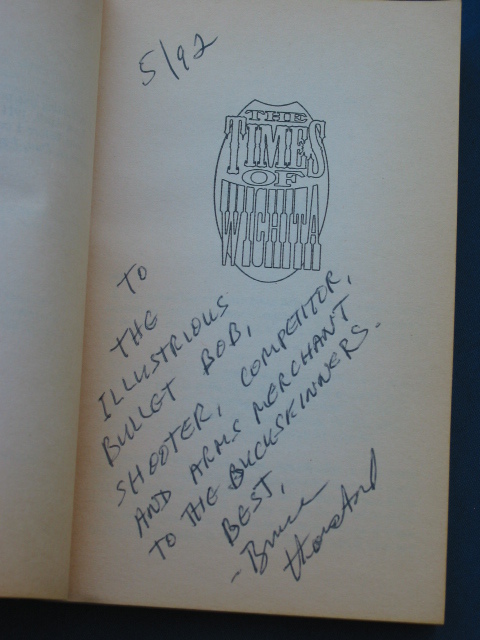 5/92
THE
TIMES
OF
WICHITA
TO
THE
ILLUSTRIOUS
BULLET BOB,
SHOOTER, COMPETITOR,
AND ARMS MERCHANT
TO THE BUCKSKINNERS.
BEST,
- Bruce